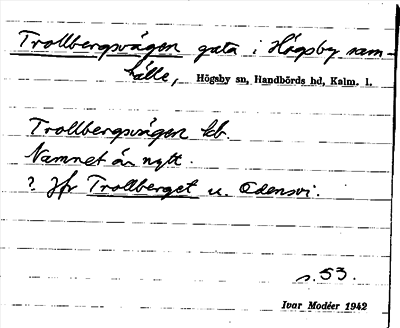 Trollbergsvägen gata i Högsby sam-
hälle, Högsby sn, Handbörds hd, Kalm. l.
Trollbergsvägen kb.
Namnet är nytt.
? Jfr Trollberget u. Odensvi.
s. 53.
Ivar Modéer 1942